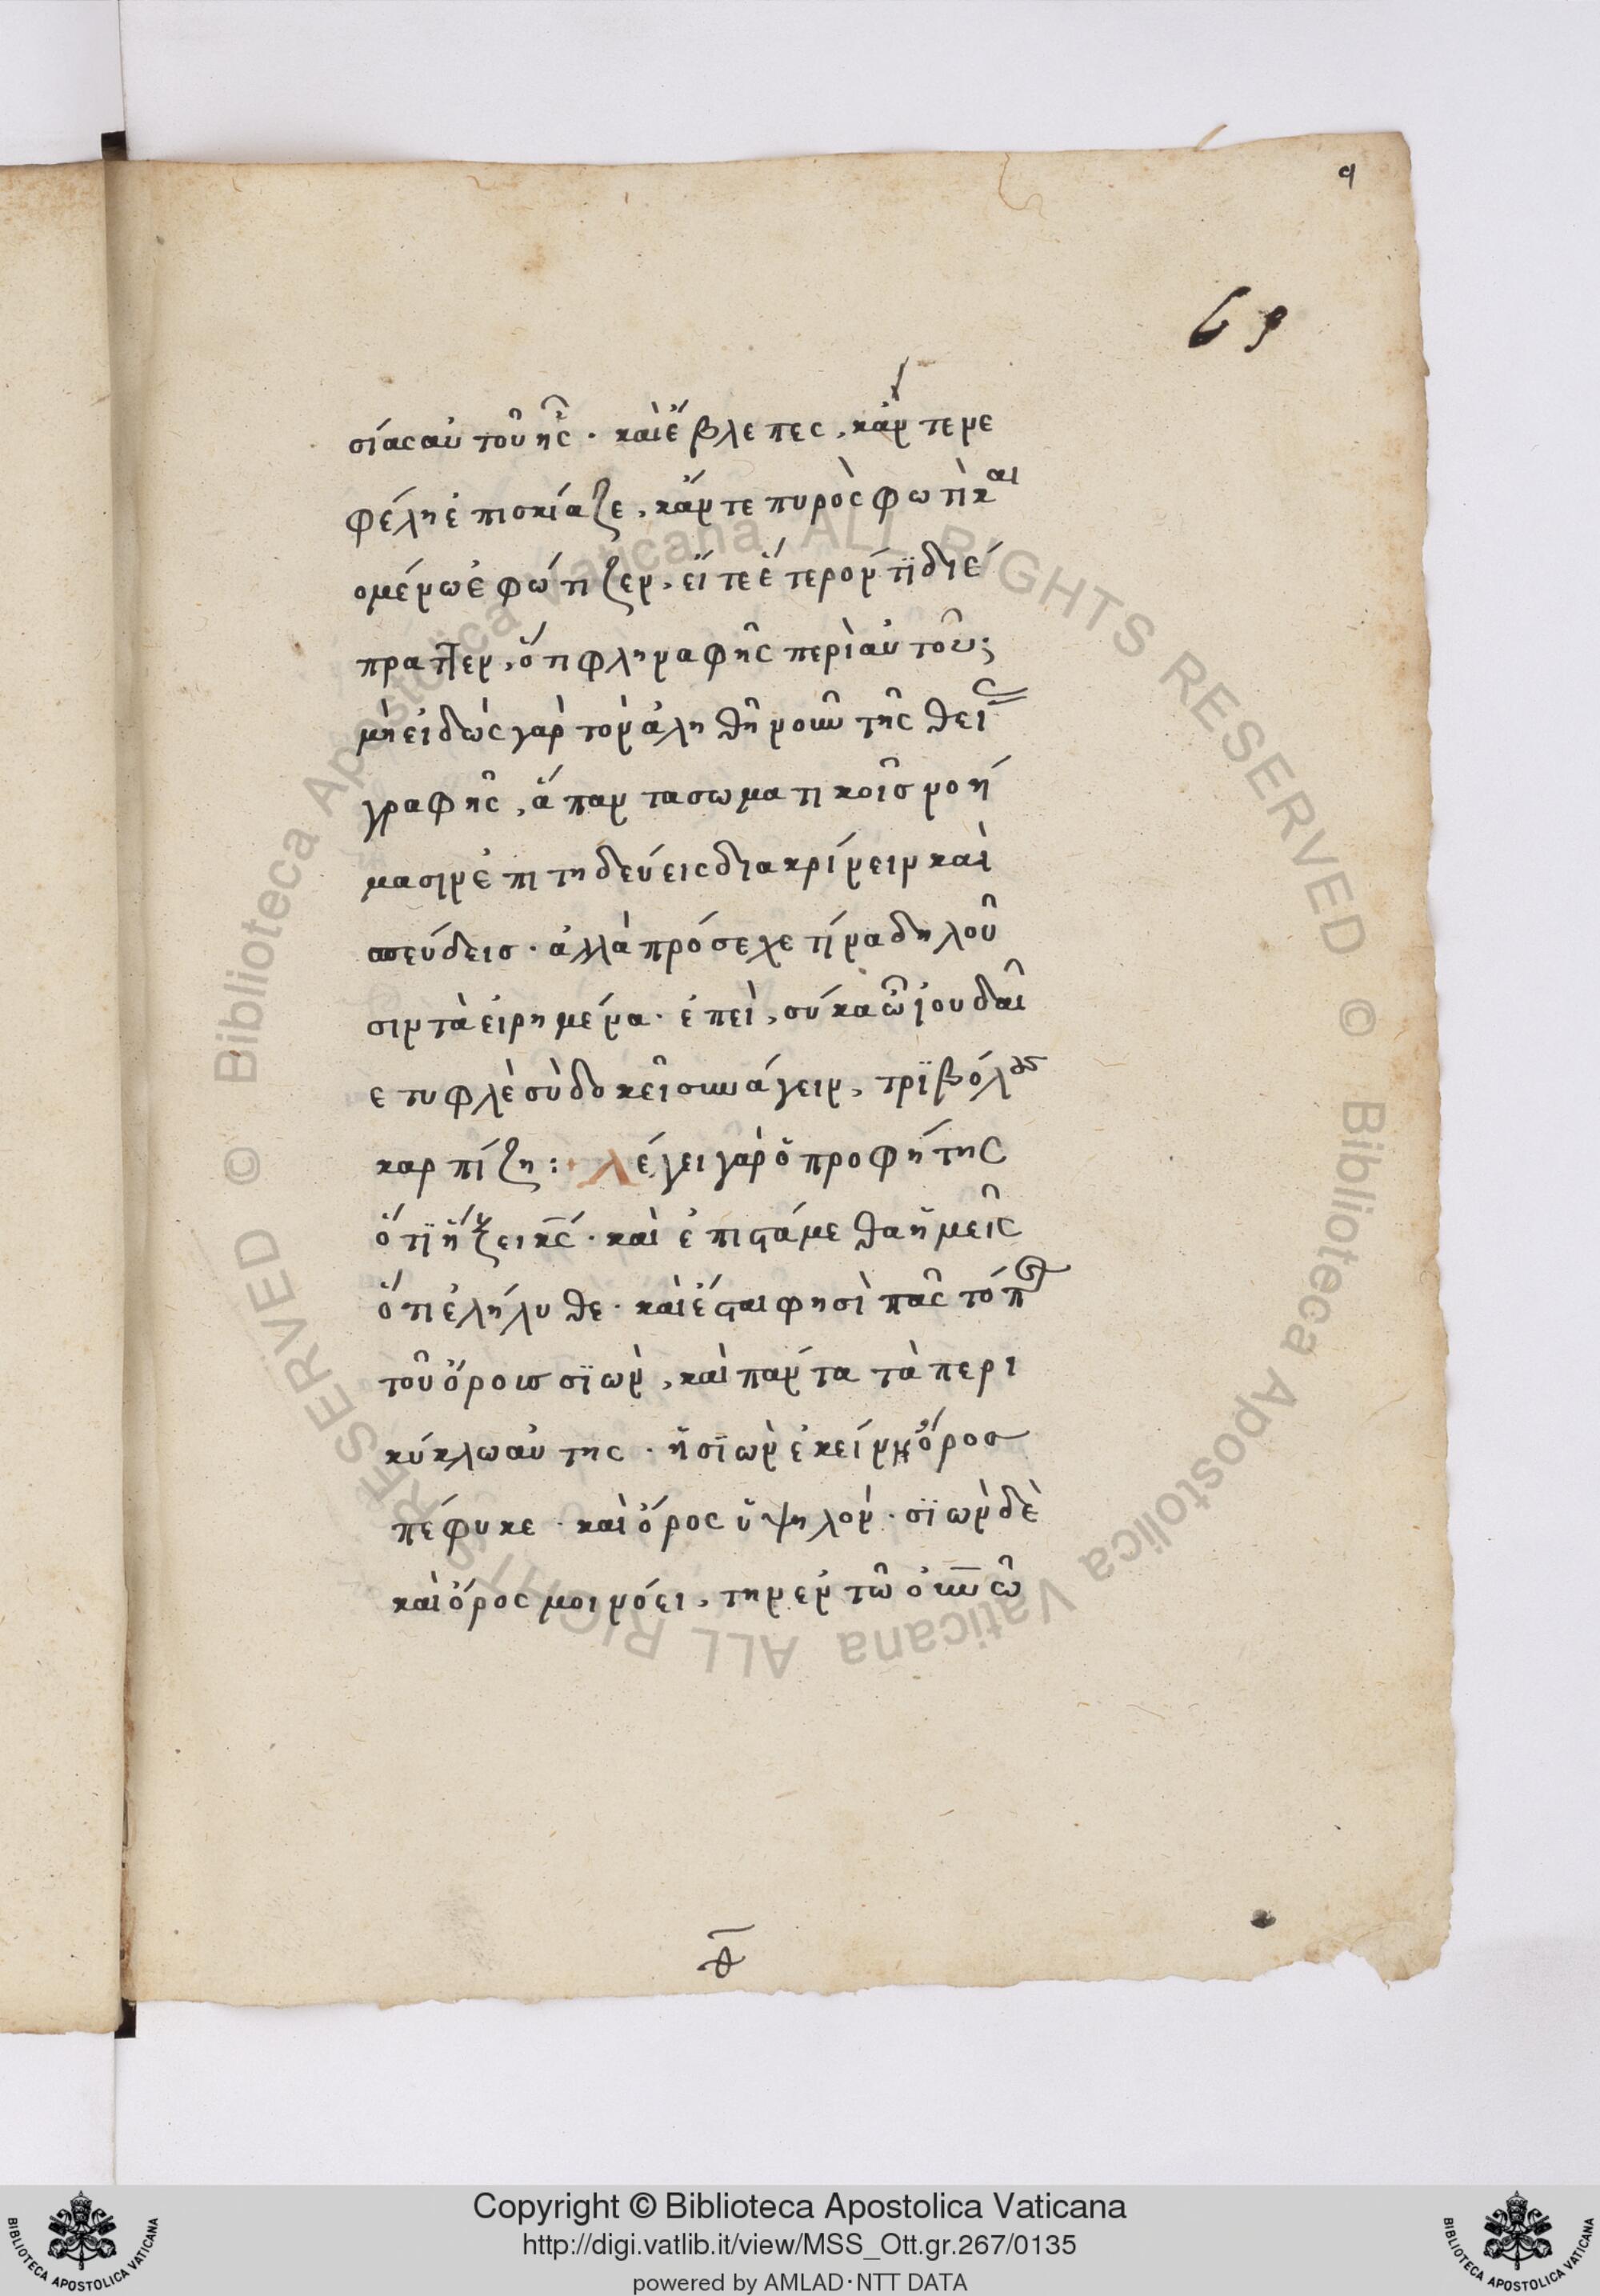 q
69
σίας αὐτοῦ ἧς · καὶ ἔβλεπες, κἄν τε νε
φέλη ἐπισκίαζε, κἄν τε πυρὸς φωτὶ και
ομένω ἐφώτιζεν, εἴτε ἕτερόν τϊ διέ
πραττεν, ὅτι φληναφῆς περὶ αὐτοῦ;
μὴ εἰδὼς γὰρ τὸν ἀληθῆ νοῦν τῆς θεί
γραφῆς, ἅπαντα σωματικοῖσ νοή
μασιν ἐπιτηδεύεις διακρίνειν καὶ
σπεύδεισ · ἀλλὰ πρόσεχε τίνα δηλοῦ
σιν τὰ εἰρημένα · ἐπεὶ, σύκα ὦ ἰουδαῖ
ε τυφλὲ σὺ δοκεῖσ συνάγειν, τρϊβόλους
καρπίζη : λέγει γὰρ ὁ προφήτης
ὅτϊ ἥξει κς · καὶ ἐπιστάμεθα ἡμεῖς
ὅτι ἐλήλυθε · καὶ ἔσται φησὶ πᾶς τόπος
τοῦ ὄρουσ σϊὼν, καὶ πάντα τὰ περι
κύκλω αὐτης · ἡ σϊὼν ἐκείνη ὄροσ
πέφυκε · καὶ ὄρος ὑψηλόν · σϊὼν δὲ
καὶ ὄρος μοι νόει, την ἐν τῶ οὐνῶ
Copyright © Biblioteca Apostolica Vaticana
http://digi.vatlib.it/view/MSS_Ott.gr.267/0135
powered by AMLAD·NTT DATA